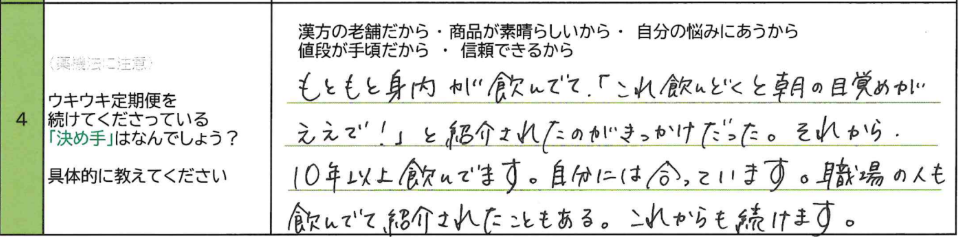 漢方の老舗だから・商品が素晴らしいから・ 自分の悩みにあうから
値段が手頃だから ・ 信頼できるから
(薬機法に注意)
4
ウキウキ定期便を
続けてくださっている
「決め手」はなんでしょう？
具体的に教えてください
もともと身内が飲んでて、「これ飲んどくと朝の目覚めが
ええで！」と紹介されたのがきっかけだった。それから、
10年以上飲んでます。自分には合っています。職場の人も
飲んでて紹介されたこともある。これからも続けます。